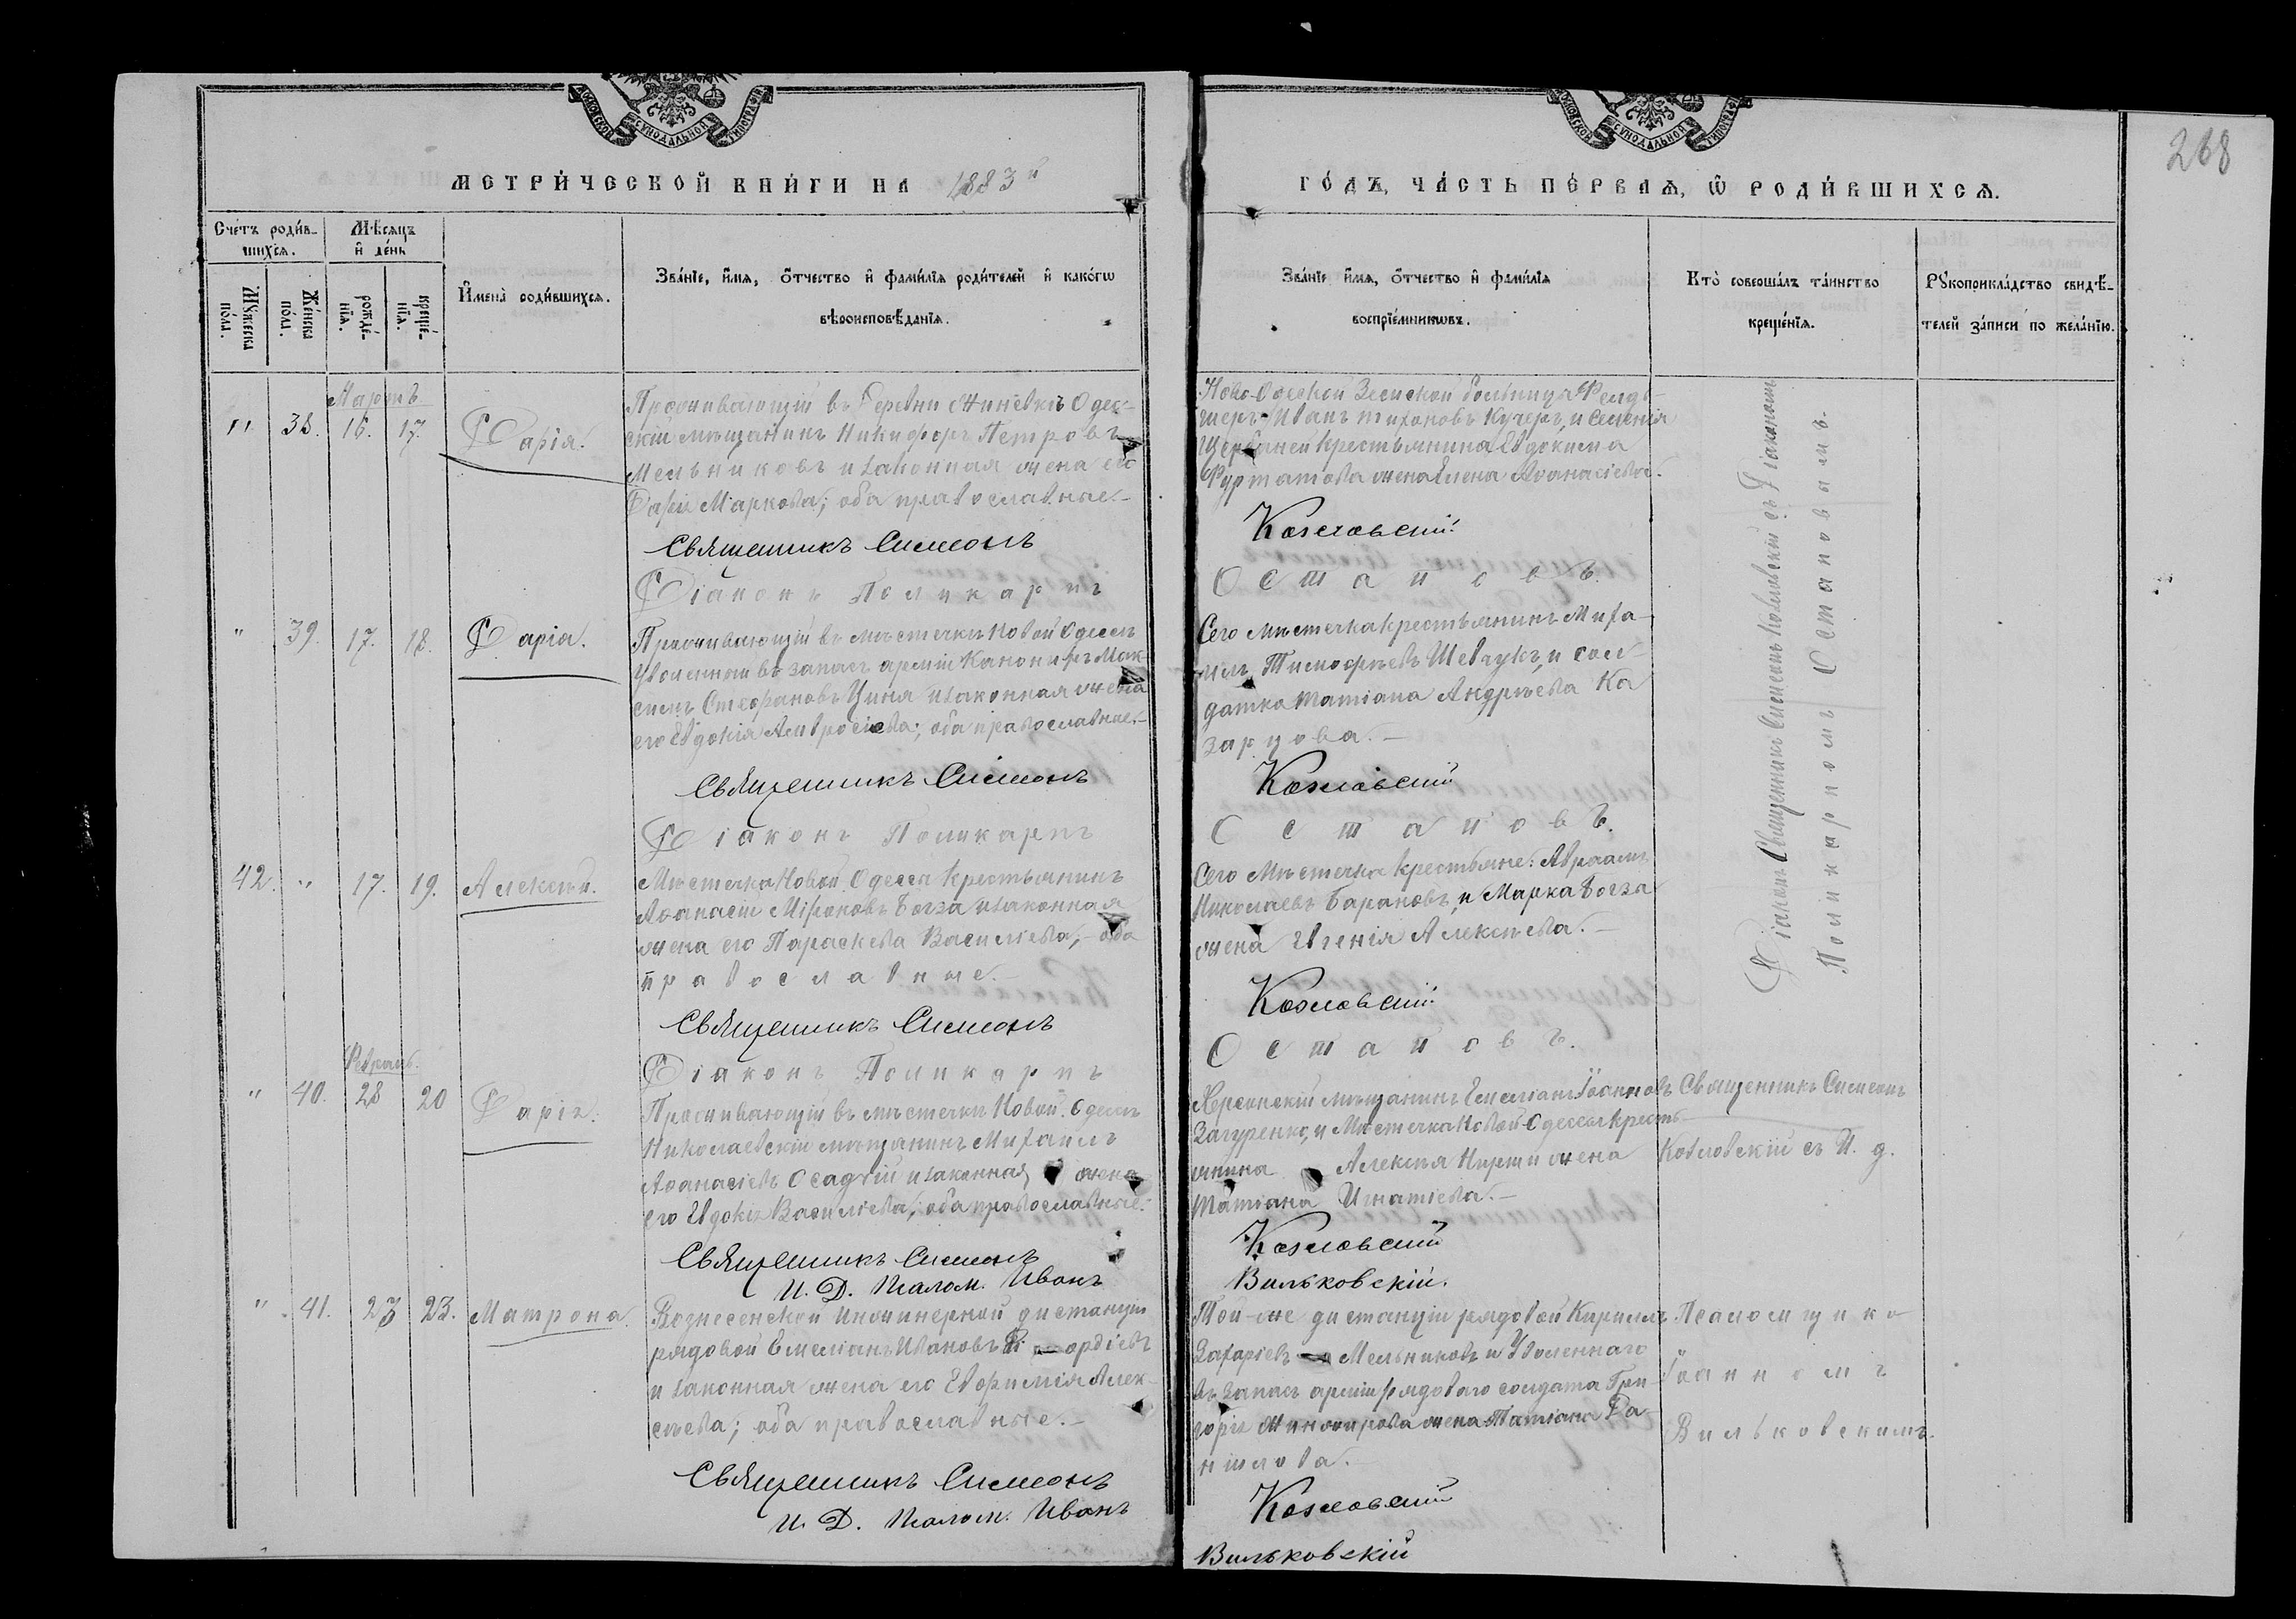 268
МОСКОВСКОЙ СѴНОДАЛЬНОЙ ТИПОГРАФІИ
МОСКОВСКОЙ СѴНОДАЛЬНОЙ ТИПОГРАФІИ
МЕТРИ́ЧЕСКОЙ КНИ́ГИ НА 1883й
ГО́ДЪ, ЧА́СТЬ ПЕ́РВАѦ, Ѡ РОДИ́ВШИХСѦ.
Сче́тъ роди́в-
шихсѧ.
Мѣ́сѧцъ
и҆ де́нь
Мꙋ́жеска
по́ла.
Же́нска
по́ла.
рожде́-
нїѧ.
креще́-
нїѧ.
И҆мена̀ роди́вшихсѧ.
Зва́нїе, и҆́мѧ, ѻ҆́тчество и҆ фами́лїѧ роди́телей и҆ како́гѡ
вѣроисповѣ́данїѧ.
Зва́нїе и҆́мѧ, ѻ҆́тчество и҆ фами́лїѧ
воспрїе́мникѡвъ.
Кто̀ соверша́лъ та́инство
креще́нїѧ.
Рꙋкоприкла́дство свидѣ́-
телей за́писи по жела́нїю.
Мартъ
" 38. 16. 17. Дарія.
Проживающій въ деревни Жиневкѣ Одес-
скій мѣщанинъ Никифоръ Петровъ
Мельниковъ и законная жена его
Дарія Маркова; оба православные.-
Священникъ Симеонъ
Діаконъ Поликарпъ
Ново-Одеской Земской больницы Фельд-
шеръ Иванъ Тихоновъ Кучеръ, и селенія
крестьянина Евдокима
жена Елена Аѳанасіева.
Козловскій
Остановъ.
Діаконъ Священникъ Симеонъ Козловскій съ Діакономъ
Поликарпомъ Становымъ.
" 39. 17. 18. Дарія.
Проживающій въ мѣстечкѣ Новой Одессѣ
Уволенный въ запасъ арміи Канониръ Мак-
симъ Стефановъ Цина и законная жена
его Евдокія Амвросіева; оба православные.-
Священникъ Симеонъ
Діаконъ Поликарпъ
Сего мѣстечка крестьянинъ Миха-
илъ Тимофѣевъ Шевчукъ, и сол-
датка Татіана Андрѣева Ка
зарцова.-
Козловскій
Остановъ.
42. " 17. 19. Алексѣй.
Мѣстечка Новой Одесса Крестьянинъ
Аѳанасій Міроновъ Богза и законная
жена его Параскева Василіева,- оба
православные.-
Священникъ Симеонъ
Діаконъ Поликарпъ
Сего Мѣстечка Крестьяне: Авраамъ
Николаевъ Барановъ, и Марка Богза
жена Евгенія Алексѣева.-
Козловскій
Остановъ.
Февраль.
" 40. 28 20 Дарія.
Проживающій въ мѣстечкѣ Новой Одессѣ
Николаевскій мѣщанинъ Михаилъ
Аѳанасіевъ Осадчій и законная жена
его Евдокія Василіева; оба православные.
Священникъ Симеонъ
И. Д. Псалом. Иванъ
Херсонскій мѣщанинъ Емеліанъ Іоанновъ
Загуренко, и Мѣстечка Новой-Одессы Кресть
янина Алексѣя жена
Татіана Игнатіева.-
Козловскій
Вильковскій.
Священникъ Симеонъ
Козловскій съ И. д.
" 41. 23. Матрона.
Вознесенской Инжинерной дистанціи
рядовой Емеліанъ Ивановъ
и законная жена его Евфимія Алек-
сѣева; оба православные.-
Священникъ Симеонъ
И. Д. Псалом. Иванъ
Той-же дистанціи рядовой Кириллъ
Захаріевъ Мельниковъ и Уволеннаго
въ запасъ арміи рядоваго солдата Гри-
горія жена Татіана Да-
нилова.-
Козловскій
Вильковскій
Псаломщико
Іоанномъ
Вильковскимъ.